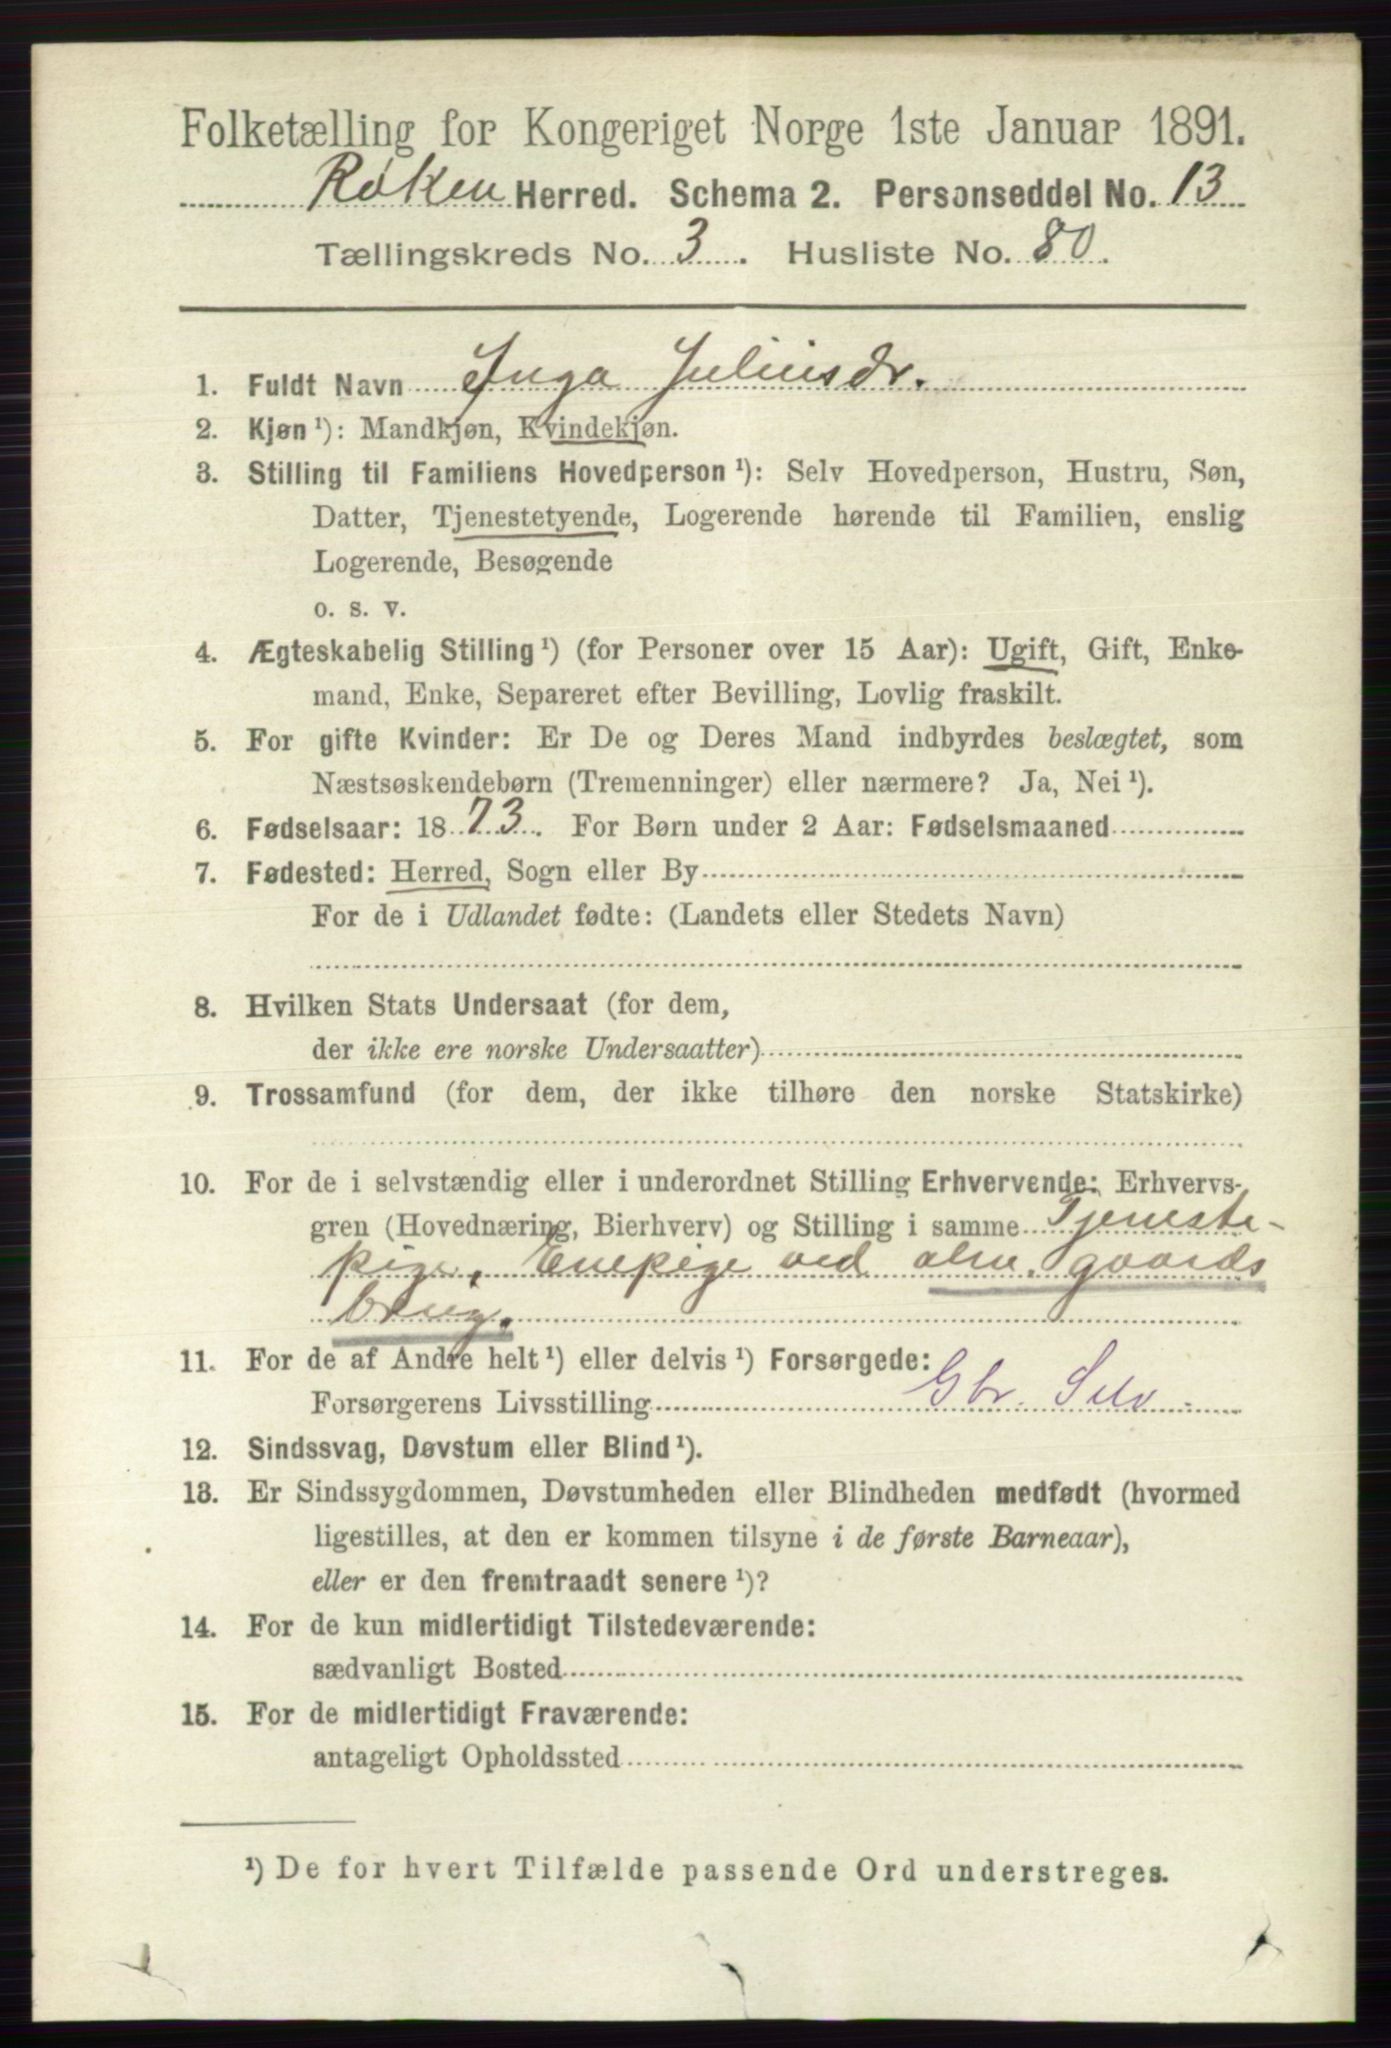 Folketælling for Kongeriget Norge 1ste Januar 1891.
Røken Herred. Schema 2. Personseddel No. 13
Tællingskreds No. 3. Husliste No. 80.
1. Fuldt Navn Inga Juliusdr.
2. Kjøn ¹): Mandkjøn, Kvindekjøn.
3. Stilling til Familiens Hovedperson ¹): Selv Hovedperson, Hustru, Søn,
Datter, Tjenestetyende, Logerende hørende til Familien, enslig
Logerende, Besøgende
o. s. v.
4. Ægteskabelig Stilling ¹) (for Personer over 15 Aar): Ugift, Gift, Enke-
mand, Enke, Separeret efter Bevilling, Lovlig fraskilt.
5. For gifte Kvinder: Er De og Deres Mand indbyrdes beslægtet, som
Næstsøskendebørn (Tremenninger) eller nærmere? Ja, Nei ¹).
6. Fødselsaar: 1873. For Børn under 2 Aar: Fødselsmaaned
7. Fødested: Herred, Sogn eller By
For de i Udlandet fødte: (Landets eller Stedets Navn)
8. Hvilken Stats Undersaat (for dem,
der ikke ere norske Undersaatter)
9. Trossamfund (for dem, der ikke tilhøre den norske Statskirke)
10. For de i selvstændig eller i underordnet Stilling Erhvervende: Erhvervs-
gren (Hovednæring, Bierhverv) og Stilling i samme Tjeneste-
pige, Enepige ved alm. gaards
brug.
11. For de af Andre helt ¹) eller delvis ¹) Forsørgede:
Forsørgerens Livsstilling Gbr. Selv.
12. Sindssvag, Døvstum eller Blind ¹).
13. Er Sindssygdommen, Døvstumheden eller Blindheden medfødt (hvormed
ligestilles, at den er kommen tilsyne i de første Barneaar),
eller er den fremtraadt senere ¹)?
14. For de kun midlertidigt Tilstedeværende:
sædvanligt Bosted
15. For de midlertidigt Fraværende:
antageligt Opholdssted
¹) De for hvert Tilfælde passende Ord understreges.